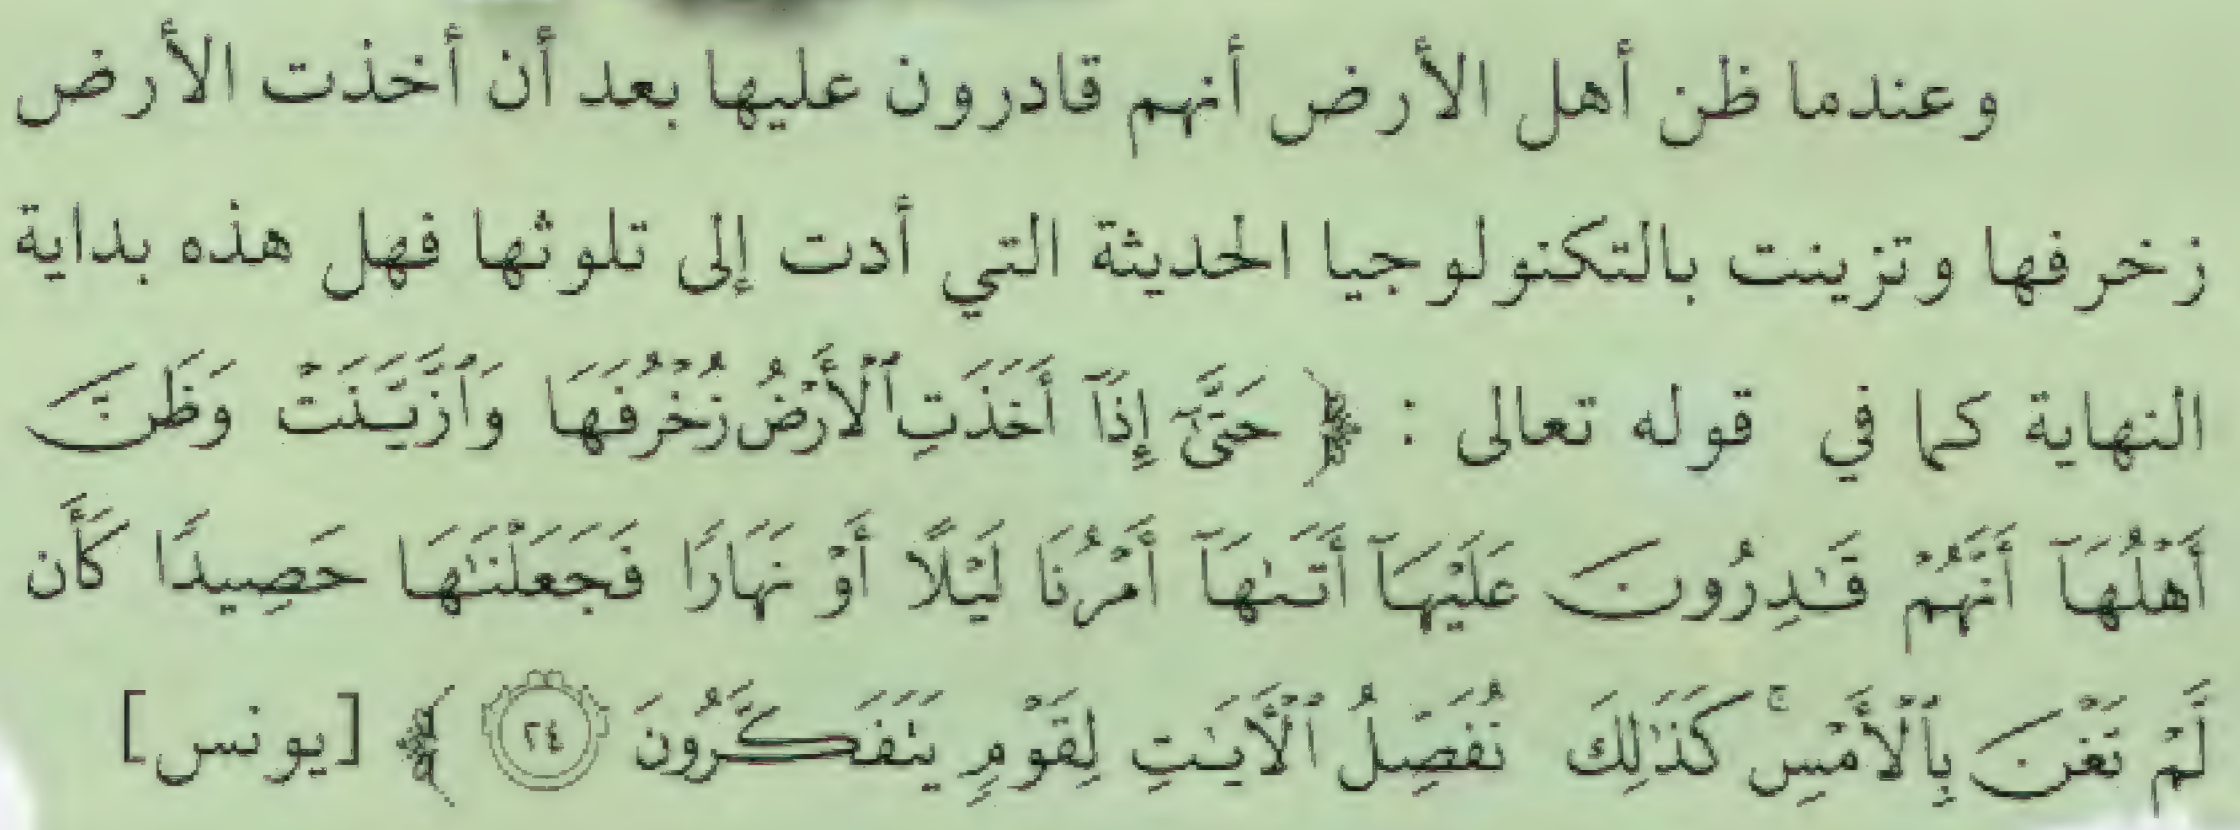 وعندما ظن أهل الأرض أنهم قادرون عليها بعد أن أخذت الأرض
زخرفها وتزينت بالتكنولوجيا الحديثة التي أدت إلى تلوثها فهل هذه بداية
النهاية كما في قوله تعالى : ﴿ حَتَّىٰٓ إِذَآ أَخَذَتِ ٱلْأَرْضُ زُخْرُفَهَا وَٱزَّيَّنَتْ وَظَنَّ
أَهْلُهَآ أَنَّهُمْ قَـٰدِرُونَ عَلَيْهَآ أَتَىٰهَآ أَمْرُنَا لَيْلًا أَوْ نَهَارًا فَجَعَلْنَـٰهَا حَصِيدًا كَأَن
لَّمْ تَغْنَ بِٱلْأَمْسِ ۚ كَذَٰلِكَ نُفَصِّلُ ٱلْـَٔايَـٰتِ لِقَوْمٍ يَتَفَكَّرُونَ ٢٤ ﴾ [يونس]